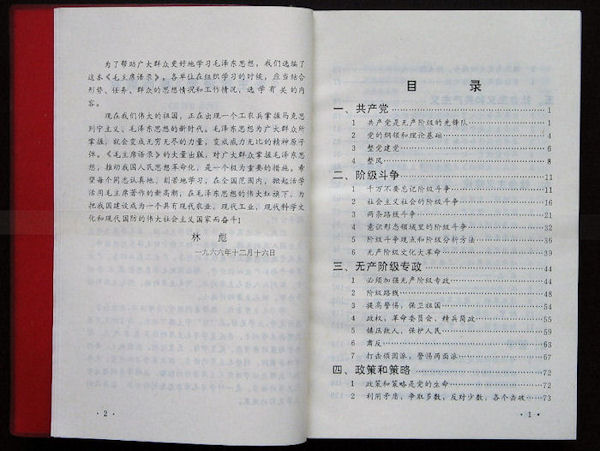 为了帮助广大群众更好地学习毛泽东思想，我们选编了
这本《毛主席语录》。各单位在组织学习的时候，应当结合
形势、任务、群众的思想情况和工作情况，选学有关的内
容。
现在我们伟大的祖国，正在出现一个工农兵掌握马克思
列宁主义、毛泽东思想的新时代。毛泽东思想为广大群众所
掌握，就会变成无穷无尽的力量，变成威力无比的精神原子
弹。《毛主席语录》的大量出版，对广大群众掌握毛泽东思
想，推动我国人民思想革命化，是一个极为重要的措施。希
望每个同志认真地、刻苦地学习，在全国范围内，掀起活学
活用毛主席著作的新高潮，在毛泽东思想的伟大红旗下，为
把我国建设成为一个具有现代农业、现代工业、现代科学文
化和现代国防的伟大社会主义国家而奋斗！
林 彪
一九六六年十二月十六日
·2·
目 录
一、共产党 1
1 共产党是无产阶级的先锋队 1
2 党的纲领和理论基础 4
3 整党建党 6
4 整风 8
二、阶级斗争 11
1 千万不要忘记阶级斗争 11
2 社会主义社会的阶级斗争 16
3 两条路线斗争 21
4 意识形态领域里的阶级斗争 30
5 阶级斗争观点和阶级分析方法 36
6 无产阶级文化大革命 39
三、无产阶级专政 44
1 必须加强无产阶级专政 44
2 阶级路线 48
3 提高警惕，保卫祖国 54
4 政权，革命委员会，精兵简政 55
5 镇压敌人，保护人民 59
6 肃反 63
7 打击顽固派，警惕两面派 67
四、政策和策略 72
1 政策和策略是党的生命 72
2 利用矛盾，争取多数，反对少数，各个击破 73
·1·